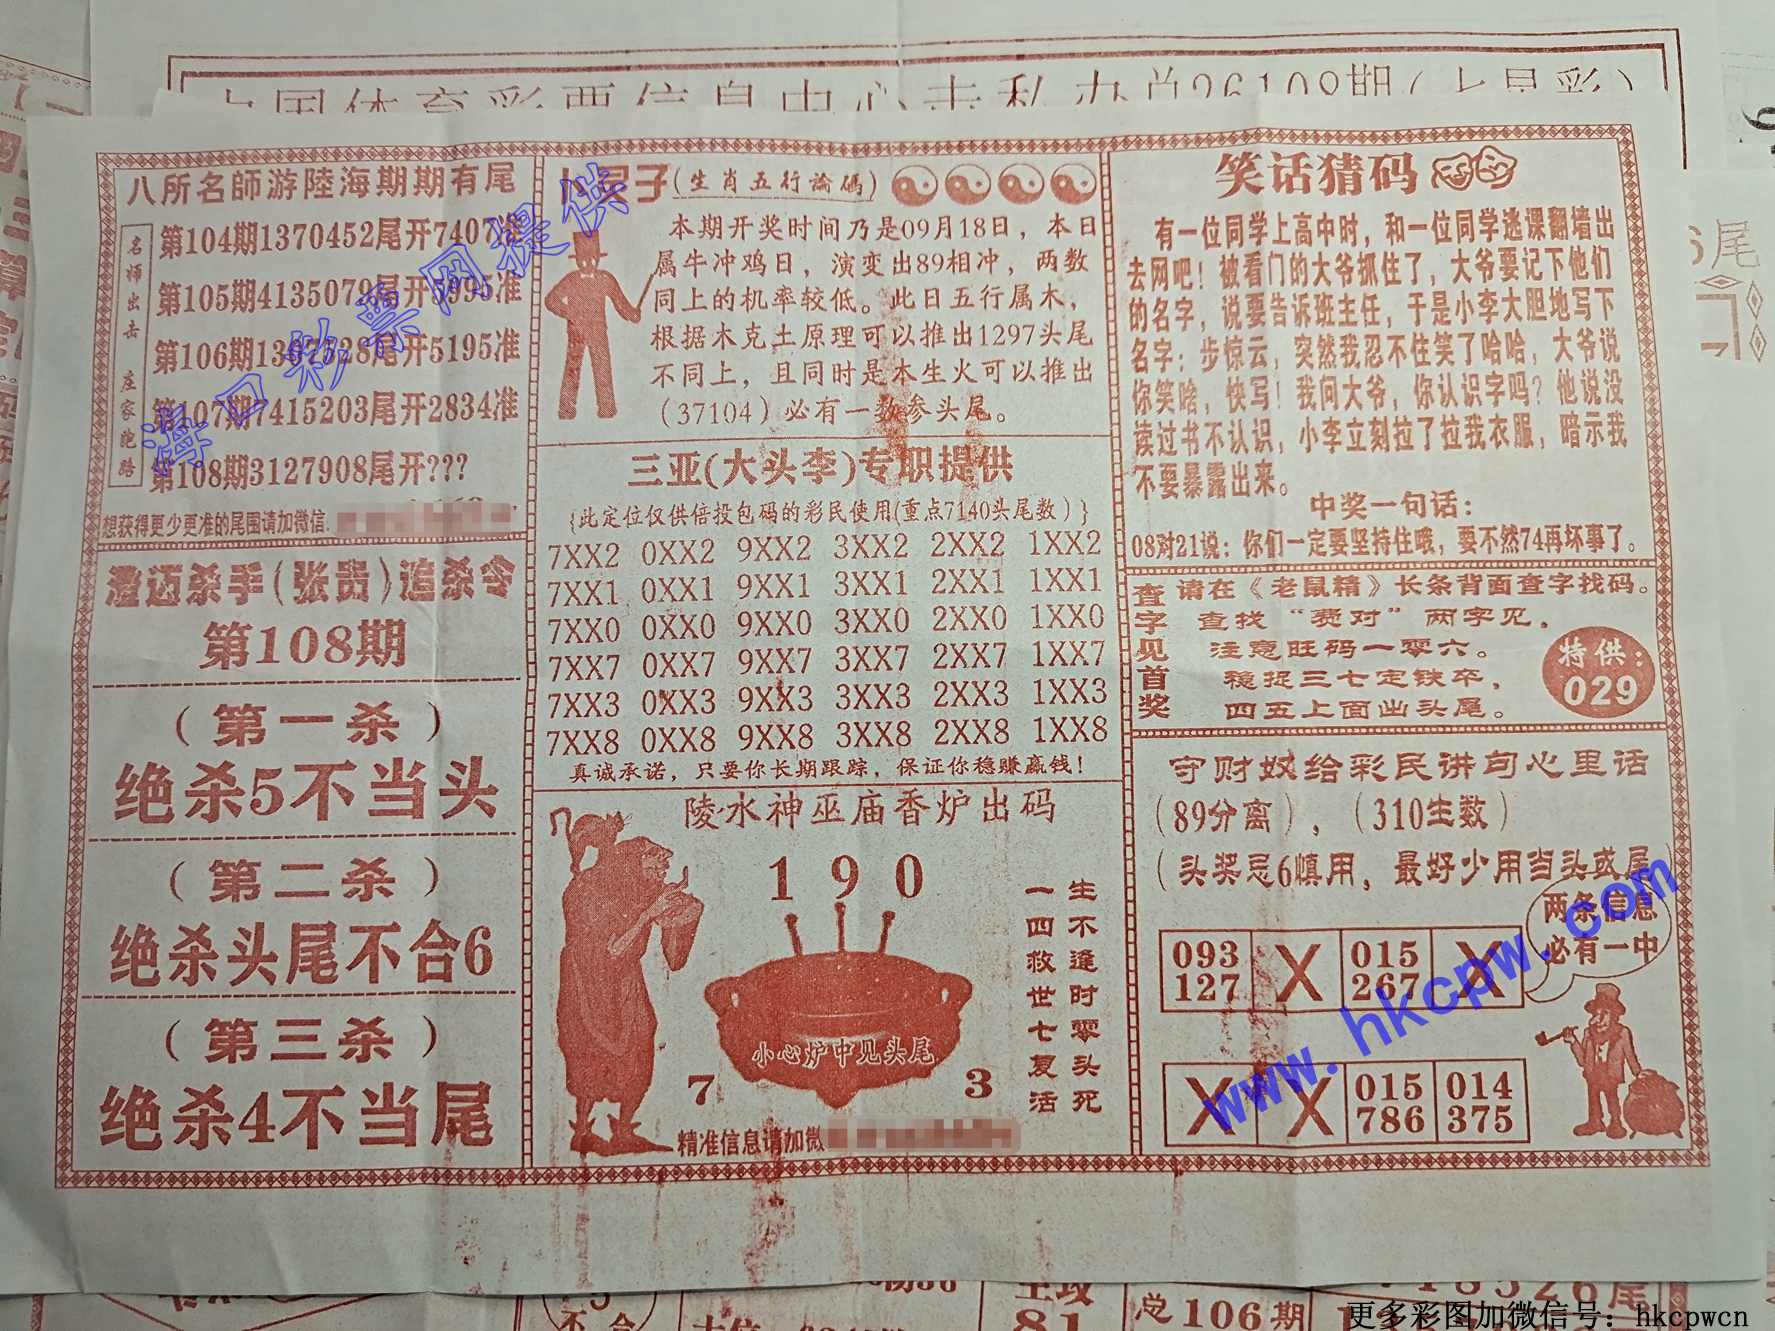 八所名師游陸海期期有尾
名师出击 庄家跑路
第104期1370452尾开7407准
第105期4135079尾开8995准
第106期1367528尾开5195准
第107期7415203尾开2834准
第108期3127908尾开???
想获得更少更准的尾围请加微信:
澄迈杀手(张贵)追杀令
第108期
(第一杀)
绝杀5不当头
(第二杀)
绝杀头尾不合6
(第三杀)
绝杀4不当尾
(生肖五行論碼)
本期开奖时间乃是09月18日，本日
属牛冲鸡日，演变出89相冲，两数
同上的机率较低。此日五行属木，
根据木克土原理可以推出1297头尾
不同上，且同时是本生火可以推出
(37104)必有一数参头尾。
三亚(大头李)专职提供
{此定位仅供倍投包码的彩民使用(重点7140头尾数)}
7XX2 0XX2 9XX2 3XX2 2XX2 1XX2
7XX1 0XX1 9XX1 3XX1 2XX1 1XX1
7XX0 0XX0 9XX0 3XX0 2XX0 1XX0
7XX7 0XX7 9XX7 3XX7 2XX7 1XX7
7XX3 0XX3 9XX3 3XX3 2XX3 1XX3
7XX8 0XX8 9XX8 3XX8 2XX8 1XX8
真诚承诺，只要你长期跟踪，保证你稳赚赢钱!
陵水神巫庙香炉出码
1 9 0
小心炉中见头尾
7 3
生不逢时零头死
一四救世七复活
精准信息请加微
笑话猜码
有一位同学上高中时，和一位同学逃课翻墙出
去网吧！被看门的大爷抓住了，大爷要记下他们
的名字，说要告诉班主任，于是小李大胆地写下
名字：步惊云，突然我忍不住笑了哈哈，大爷说
你笑啥，快写！我问大爷，你认识字吗？他说没
读过书不认识，小李立刻拉了拉我衣服，暗示我
不要暴露出来。
中奖一句话：
08对21说：你们一定要坚持住哦，要不然74再坏事了。
查字见首奖
请在《老鼠精》长条背面查字找码。
查找“赘对”两字见，
注意旺码一零六。
稳捉三七定铁卒，
四五上面出头尾。
特供：
029
守财奴给彩民讲句心里话
(89分离)，(310生数)
(头奖忌6慎用，最好少用当头或尾)
两条信息
必有一中
093 X 015 X
127 267
X X 015 014
786 375
海口彩票网提供
www.hkcpw.com
总106期
18526尾
更多彩图加微信号：hkcpwcn